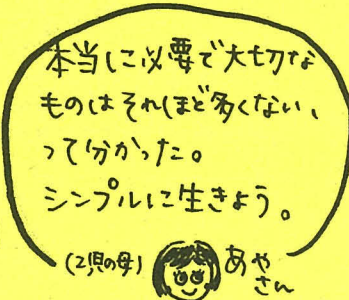 本当に必要で大切な
ものはそれほど多くない、
って分かった。
シンプルに生きよう。
(2児の母)
あや
さん